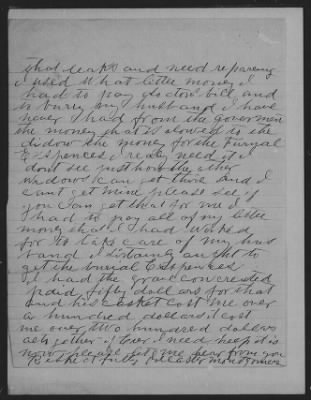 that leaks and need reparing
I used What little money I
had to pay doctors bill and
to burry my husband I have
never had from the govermen
the money that is alowed to the
Widow the money for the Furyal
Exspences I realy need it I
dont see just how the other
Widows can get their and I
cant get mine please see if
you Can get that for me I
had to pay all of my little
money that I had Worked
for to take care of my hus
band I sirtainly aught to
get the burial Exspences
I had the grave Concreeted
I paid fifty dollars for that
and his casket cost me over
a hundred dollars it cost
me over two hundred dollars
all gather if Ever I need help it is
now please let me hear from you
Respectfully